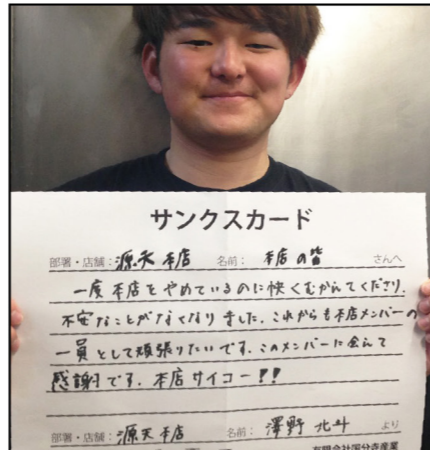 サンクスカード
部署・店舗:源天本店 名前: 本店の皆 さんへ
一度本店をやめているのに快くむかえてくださり、
不安なことがなくなりました。これからも本店メンバーの
一員として頑張りたいです。このメンバーに会えて
感謝です。本店サイコー!!
部署・店舗:源天本店 名前: 澤野 北斗 より
有限会社国分寺産業